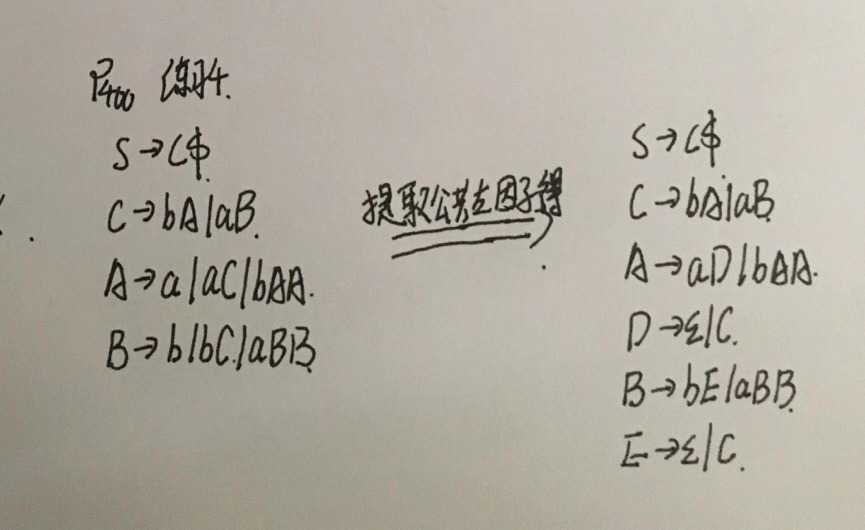 P400 练习4.
S→C$.
C→bA|aB.
A→a|aC|bAA.
B→b|bC.|aBB.
提取公共左因子得
S→C$.
C→bA|aB.
A→aD|bAA.
D→ε|C.
B→bE|aBB.
E→ε|C.